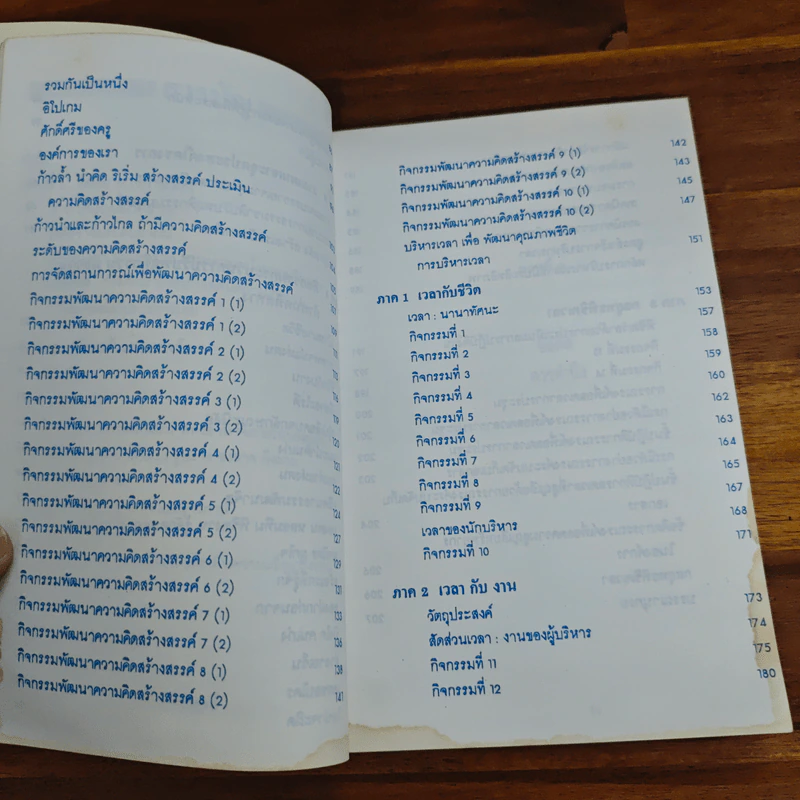 รวมกันเป็นหนึ่ง
อิปิเกม
ศักดิ์ศรีของครู
องค์การของเรา
ก้าวล้ำ นำคิด ริเริ่ม สร้างสรรค์ ประเมิน
ความคิดสร้างสรรค์
ก้าวนำและก้าวไกล ถ้ามีความคิดสร้างสรรค์
ระดับของความคิดสร้างสรรค์
การจัดสถานการณ์เพื่อพัฒนาความคิดสร้างสรรค์
กิจกรรมพัฒนาความคิดสร้างสรรค์ 1 (1)
กิจกรรมพัฒนาความคิดสร้างสรรค์ 1 (2)
กิจกรรมพัฒนาความคิดสร้างสรรค์ 2 (1)
กิจกรรมพัฒนาความคิดสร้างสรรค์ 2 (2)
กิจกรรมพัฒนาความคิดสร้างสรรค์ 3 (1)
กิจกรรมพัฒนาความคิดสร้างสรรค์ 3 (2)
กิจกรรมพัฒนาความคิดสร้างสรรค์ 4 (1)
กิจกรรมพัฒนาความคิดสร้างสรรค์ 4 (2)
กิจกรรมพัฒนาความคิดสร้างสรรค์ 5 (1)
กิจกรรมพัฒนาความคิดสร้างสรรค์ 5 (2)
กิจกรรมพัฒนาความคิดสร้างสรรค์ 6 (1)
กิจกรรมพัฒนาความคิดสร้างสรรค์ 6 (2)
กิจกรรมพัฒนาความคิดสร้างสรรค์ 7 (1)
กิจกรรมพัฒนาความคิดสร้างสรรค์ 7 (2)
กิจกรรมพัฒนาความคิดสร้างสรรค์ 8 (1) 138
กิจกรรมพัฒนาความคิดสร้างสรรค์ 8 (2) 141
กิจกรรมพัฒนาความคิดสร้างสรรค์ 9 (1) 142
กิจกรรมพัฒนาความคิดสร้างสรรค์ 9 (2) 143
กิจกรรมพัฒนาความคิดสร้างสรรค์ 10 (1) 145
กิจกรรมพัฒนาความคิดสร้างสรรค์ 10 (2) 147
บริหารเวลา เพื่อ พัฒนาคุณภาพชีวิต
การบริหารเวลา 151
ภาค 1 เวลากับชีวิต
เวลา : นานาทัศนะ 153
กิจกรรมที่ 1 157
กิจกรรมที่ 2 158
กิจกรรมที่ 3 159
กิจกรรมที่ 4 160
กิจกรรมที่ 5 162
กิจกรรมที่ 6 163
กิจกรรมที่ 7 164
กิจกรรมที่ 8 165
กิจกรรมที่ 9 167
เวลาของนักบริหาร 168
กิจกรรมที่ 10 171
ภาค 2 เวลา กับ งาน
วัตถุประสงค์ 173
สัดส่วนเวลา : งานของผู้บริหาร 174
กิจกรรมที่ 11 175
กิจกรรมที่ 12 180